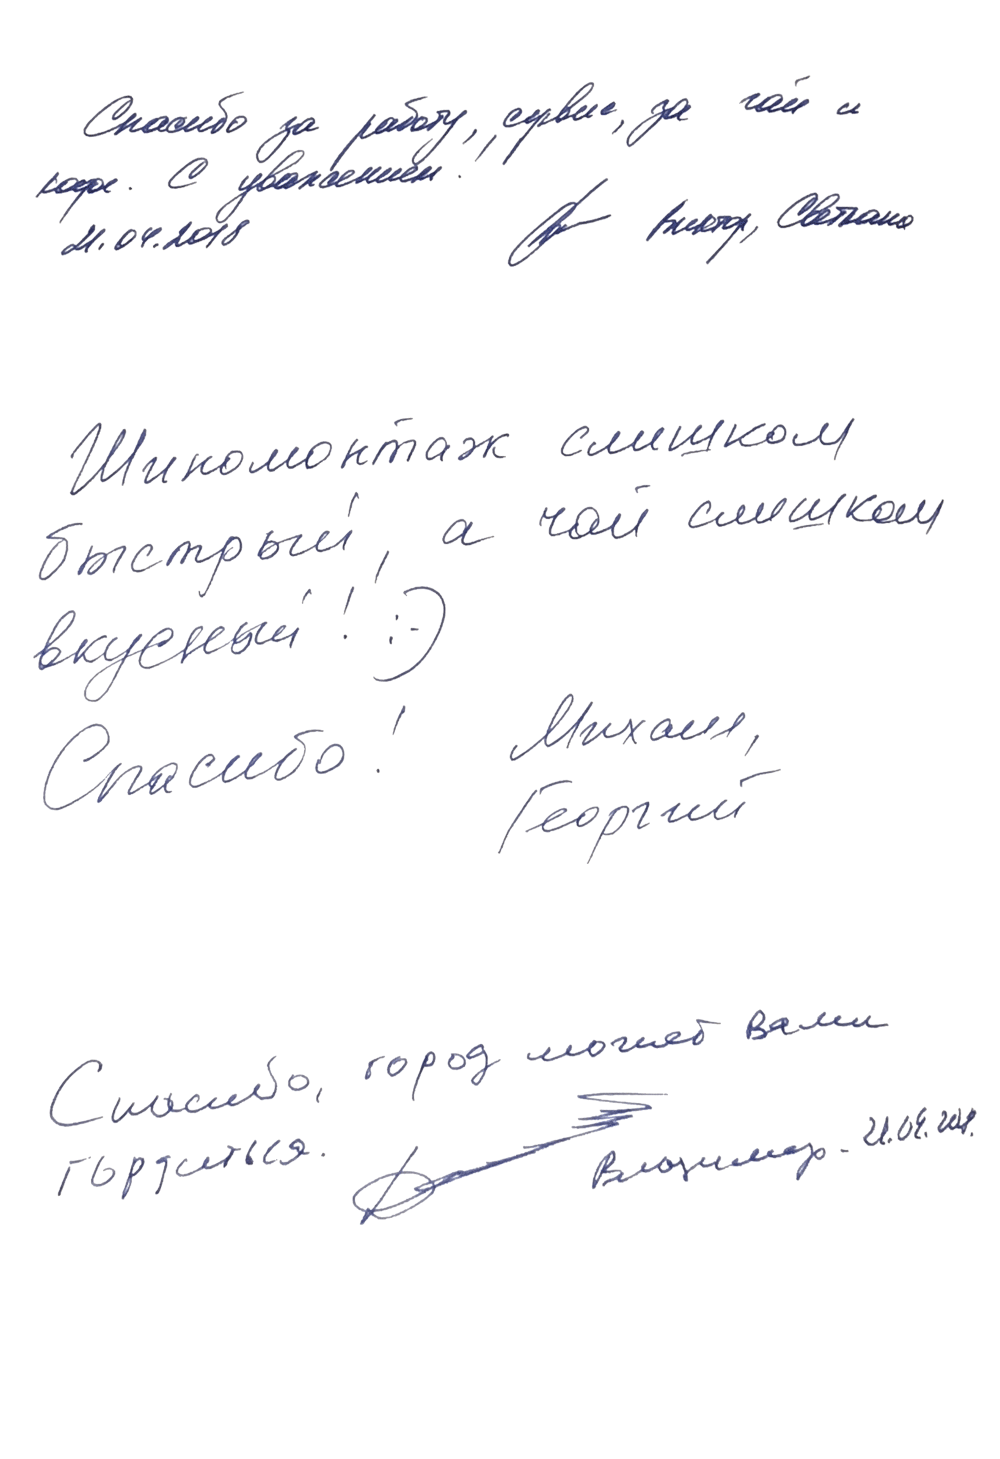 Спасибо за работу, сервис, за чай и
кофе. С уважением!
21.04.2018 Виктор, Светлана
Шиномонтаж слишком
быстрый, а чай слишком
вкусный! :-)
Спасибо! Михаил,
Георгий
Спасибо, город может вами
гордиться.
Владимир. 21.04.2018.